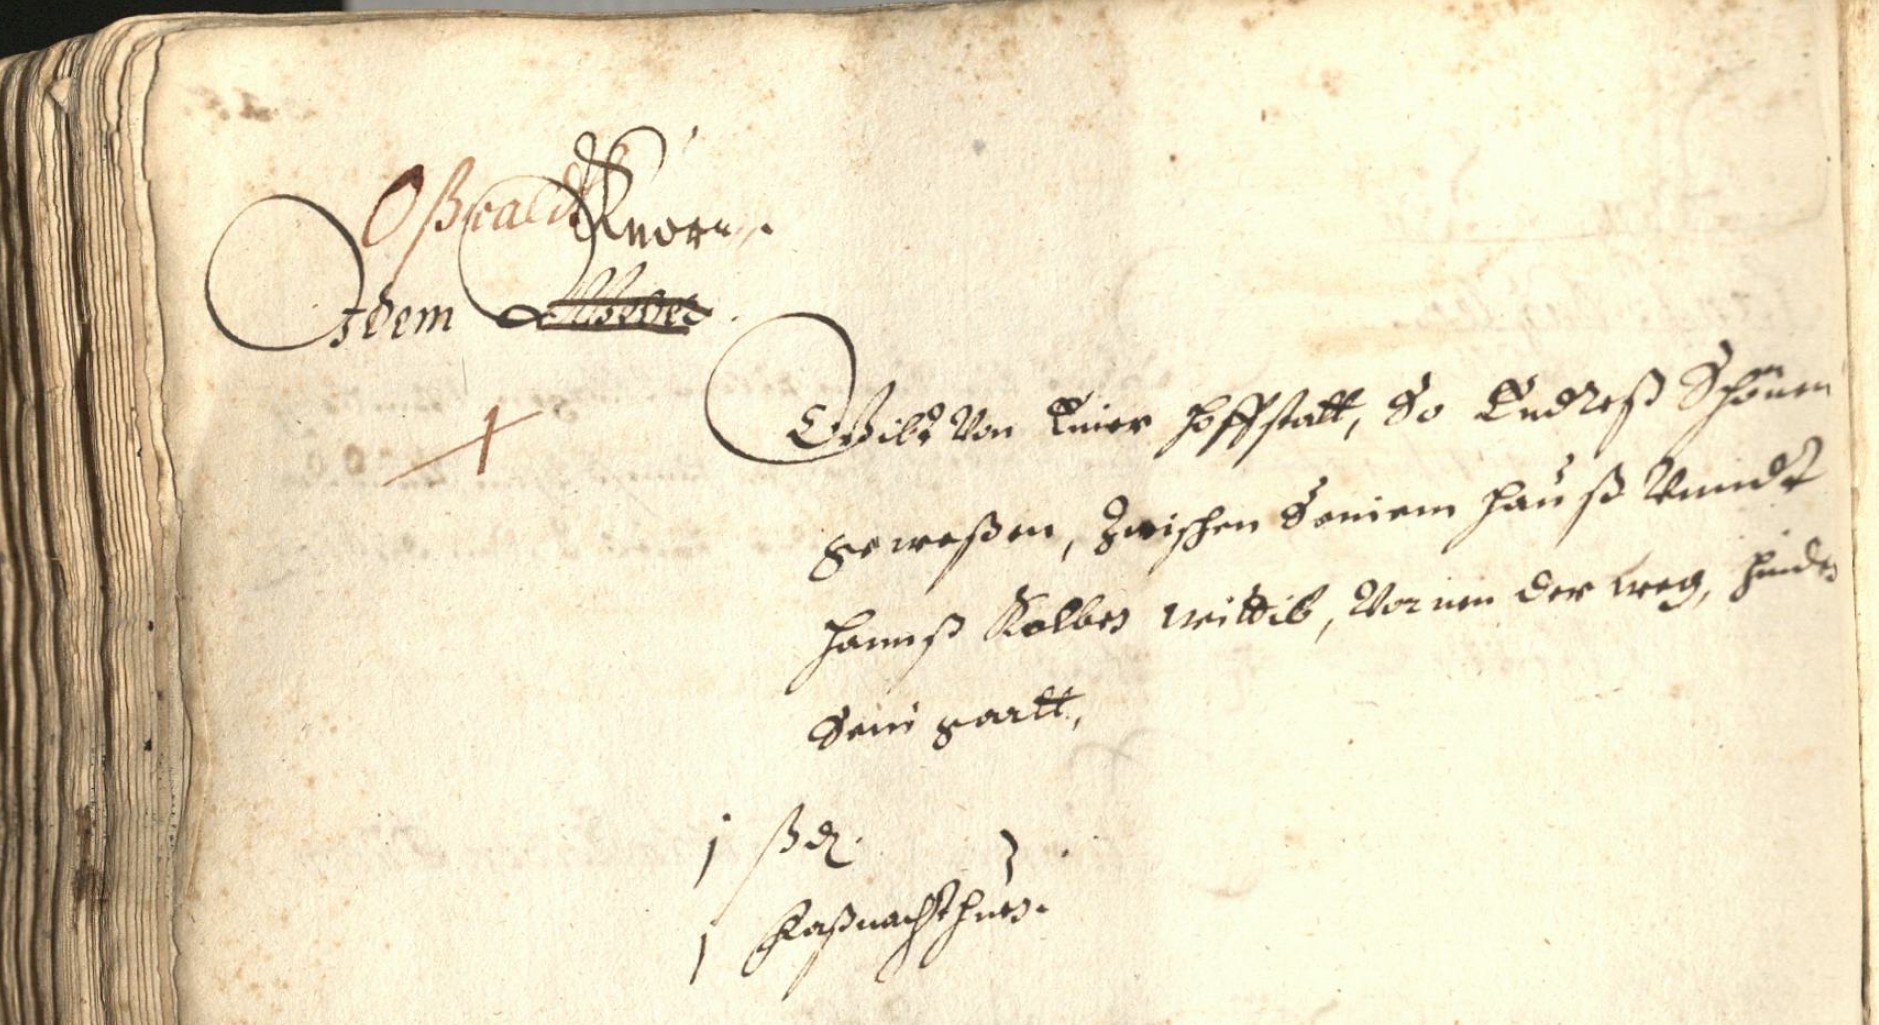 Oßwaldt Knorn.
Idem
Gibt Von Einer hoffstatt, So Endreß Schönen
geweßen, Zwischen Seinem hauß Vnnd
hannß Kolben wittib, Vornen der weg, hinden
Sein gartt,
1 ßdl.
1 Faßnachthuen.